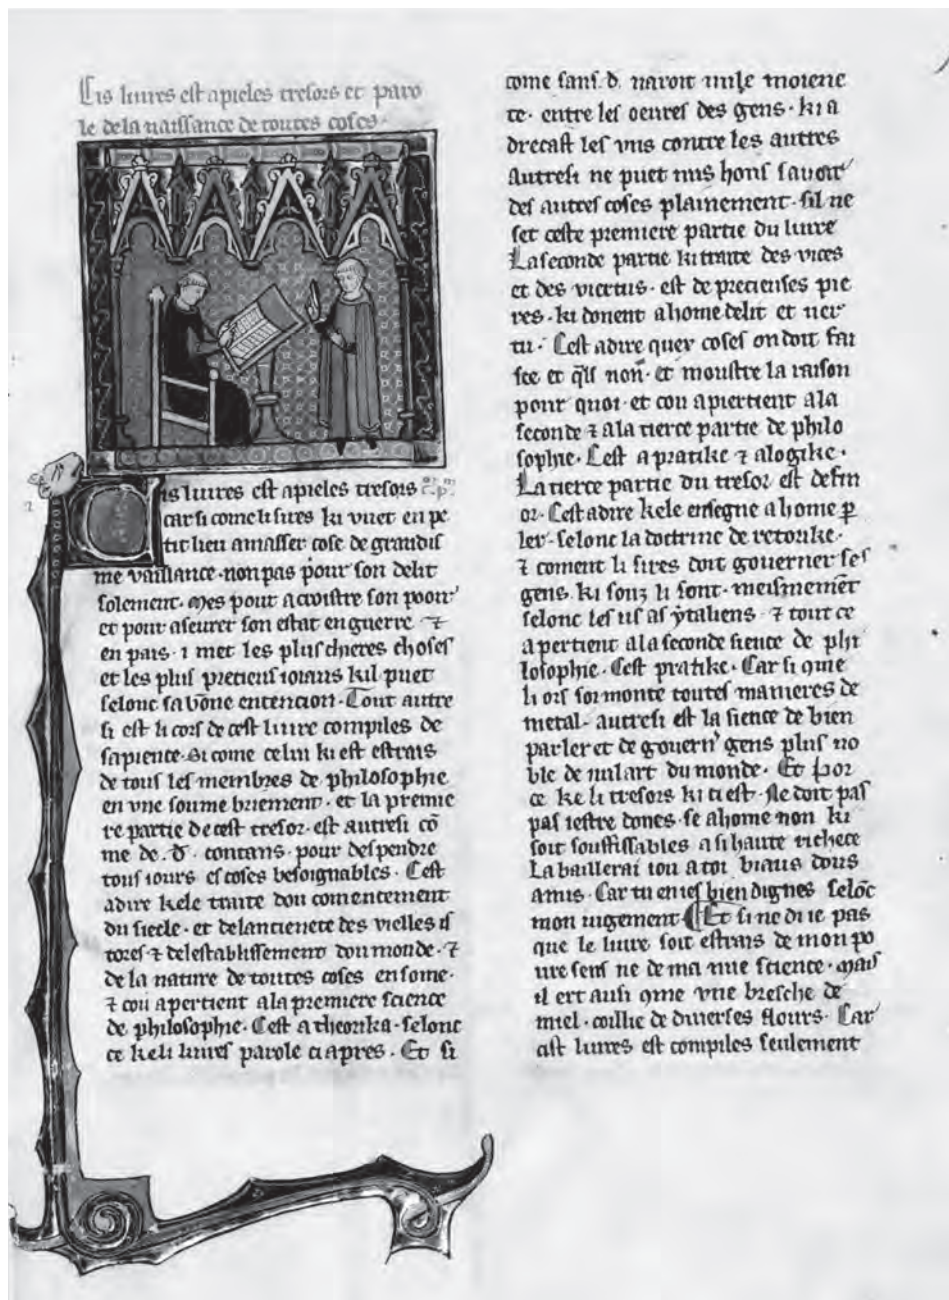 Cis liures est apieles tresors et paro
le dela naissance de toutes coses.
Cis liures est apieles tresors
car si come li sires ki vuet en pe
tit lieu amasser cose de grandis
me vaillance. non pas pour son delit
solement. Mes pour acroistre son pooir
et pour aseurer son estat en guerre ⁊
en pais. i met les plus chieres choses
et les plus precieus ioiaus kil puet
selonc sa bõne entencion. Tout autre
si est li cors de cest liure compiles de
sapience. Si come celui ki est estrais
de tous les membres de philosophie
en vne soume briement. et la premie
re partie de cest tresor. est autresi cõ
me de .d. contans. pour despendre
tous iours es coses besoignables. Cest
adire kele traite dou comencement
du siecle. et delancienete des vielles is
tores ⁊ delestablissement dou monde. ⁊
de la nature de toutes coses en some.
⁊ cou apertient ala premiere science
de philosophie. Cest a theorika. selonc
ce keli liures parole ci apres. Et si
come sans .d. naroit nule moiene
te. entre les oeures des gens. ki a
drecast les vns contre les autres
Autresi ne puet nus hons sauoir
des autres coses plainement. sil ne
set ceste premiere partie du liure
La seconde partie ki traite des vices
et des viertus. est de precieuses pie
res. ki donent a home delit et uer
tu. Cest adire quex coses on doit fai
re et q̃ls non. et moustre la raison
pour quoi. et cou apiertient ala
seconde ⁊ ala tierce partie de philo
sophie. Cest a pratike ⁊ a logike.
La tierce partie du tresor est de fin
or. Cest adire kele ensegne a home p
ler. selonc la doctrine de retorike.
⁊ coment li sires doit gouerner ses
gens. ki souz li sont. meismemẽt
selonc les us as ytaliens. ⁊ tout ce
apertient ala seconde sience de phi
losophie. Cest pratike. Car si 9me
li ors sormonte toutes manieres de
metal. autresi est la sience de bien
parler et de gouern' gens plus no
ble de nul art du monde. Et por
ce ke li tresors ki ci est. Ne doit pas
pas iestre dones. se a home non ki
soit souffissables a si haute richece
La baillerai iou a toi biaus dous
amis. Car tu en ies bien dignes selõc
mon iugement. ¶ Et si ne di ie pas
que le liure soit estrais de mon po
ure sens ne de ma nue science. Mais
il ert ausi 9me vne bresche de
miel. coillie de diuerses flours. Car
cist liures est compiles seulement